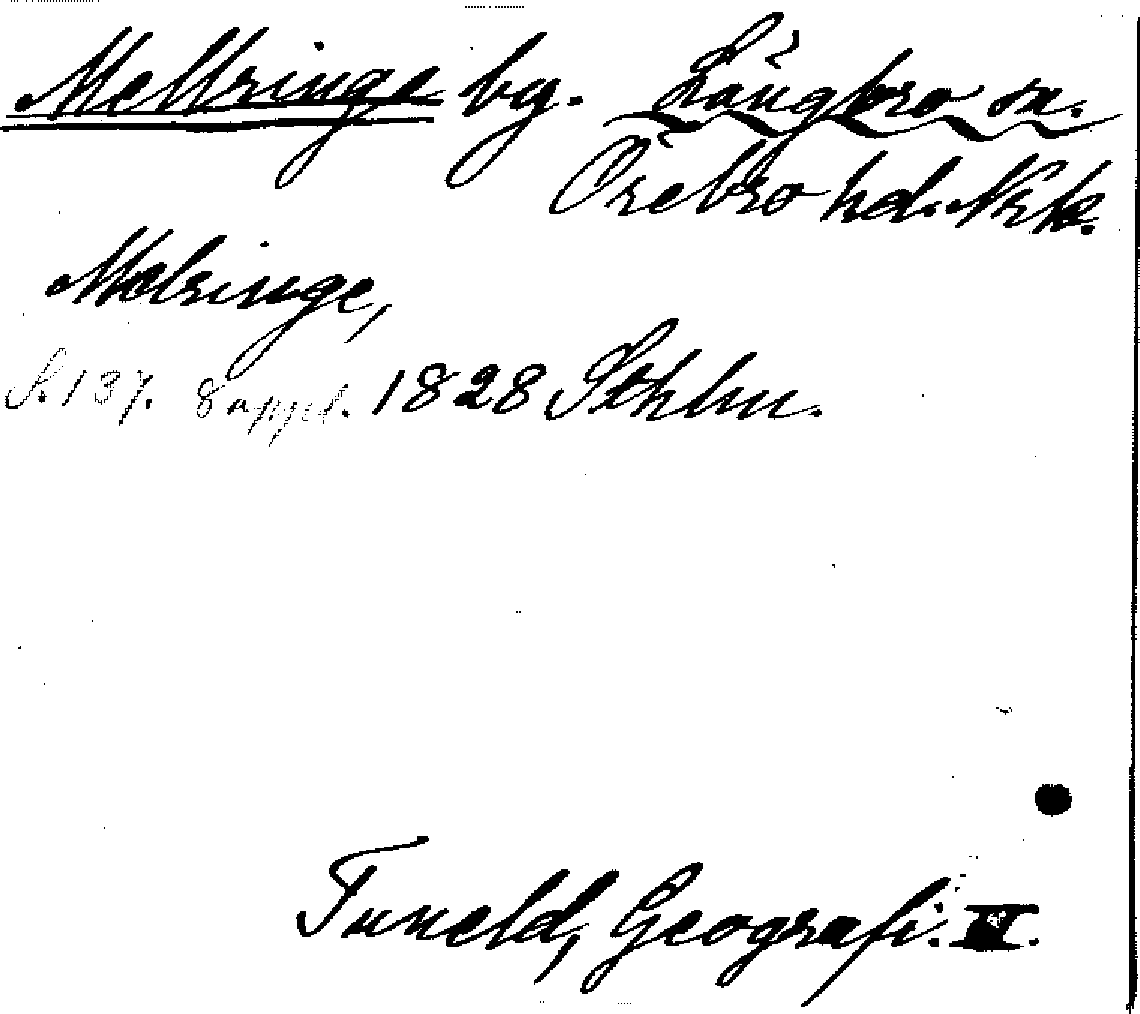 Mellringe bg. Långbro sn.
Örebro hd. Nrk.
Melringe,
S. 137. 8 uppl. 1828 Sthlm.
Tuneld, Geografi.